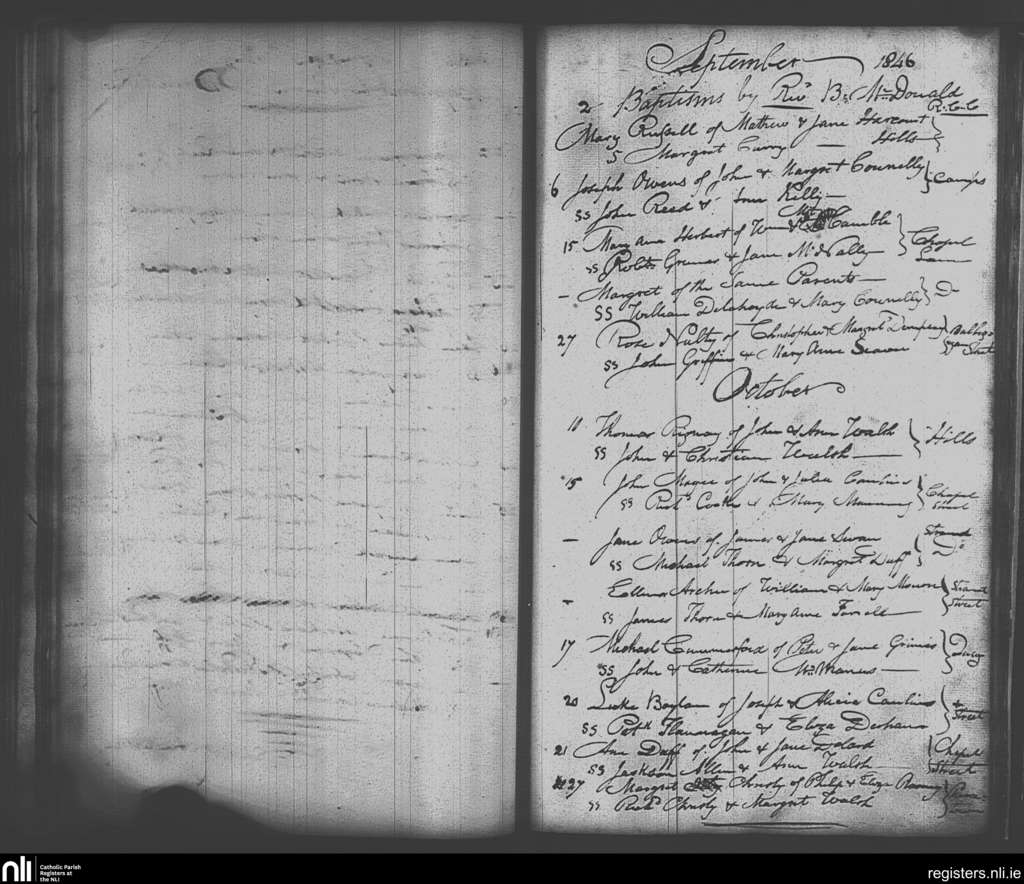 September 1846
2 Baptisms by Revd B. McDonald
R.C.C
Mary Russell of Mathew & Jane Harcourt } Hills
S Margret Curry —
6 Joseph Owens of John & Margret Connelly }
SS John Reed & Ann Kelly —
15 Mary Ann Herbert of Wm & Camble } Chapel
SS Robt Grimes & Jane McNally Lane
— Margret of the Same Parents — } Do
SS William Delahoyde & Mary Connelly
27 Rose of Christopher & Margret Dempsey }
SS John Griffin & Mary Anne Street
October
11 Thomas of John & Ann Walsh } Hills
SS John & Christian Walsh —
15 John Magee of John & Julia } Chapel
SS Richd Cooke & Mary Street
— Jane Owens of James & Jane Swan } Strand
SS Michael Thorn & Margret Duff Do
- Ellenor Archer of William & Mary } Strand
SS James Thorn & Mary Anne Farrell — Street
17 Michael of Peter & Jane Grimes }
SS John & Catherine McManus —
20 Luke Boylan of Joseph & Alicia } Street
SS Patk Flannagan & Eliza
21 Ann Duff of John & Jane } Chapel
SS Jackson Allen & Ann Walsh Street
27 Margret Christy of Philip & Eliza }
SS Richd Christy & Margret Walsh
nli
Catholic Parish
Registers at
the NLI
registers.nli.ie